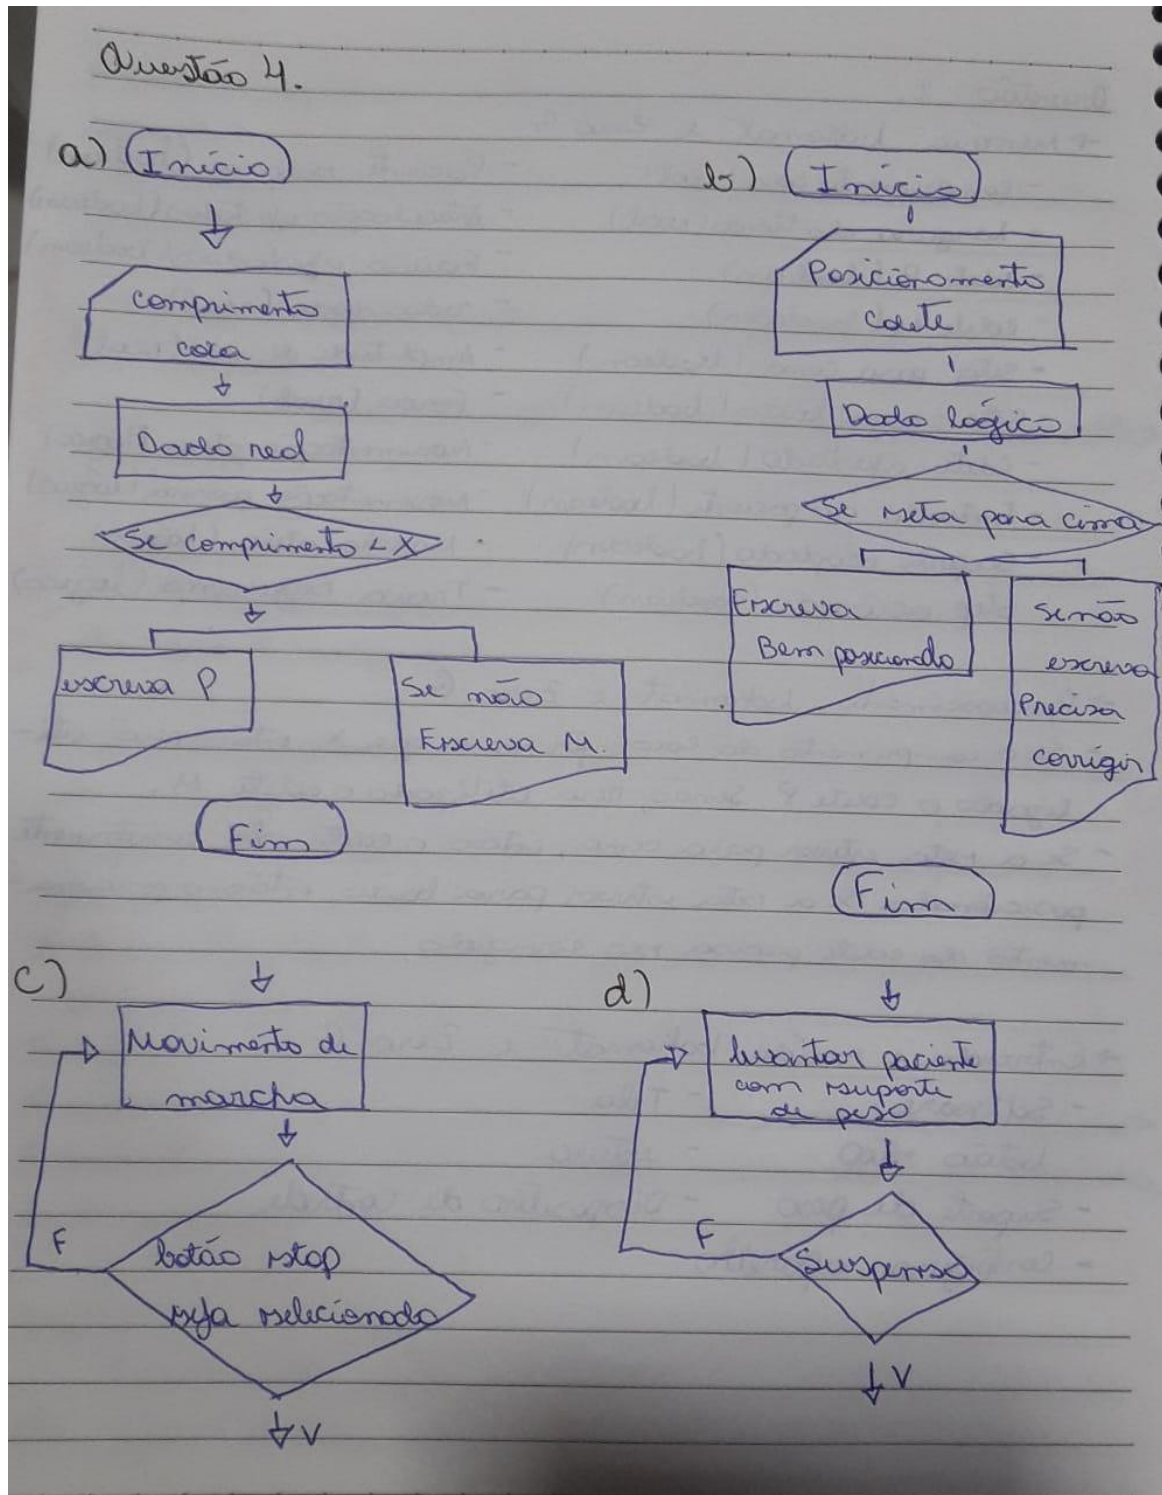 Questão 4.
a) Início
comprimento
coxa
Dado real
Se comprimento < X
escreva P
Se não
Escreva M.
Fim
b) Início
Posicionamento
colete
Dado lógico
Se seta para cima
Escreva
Bem posicionado
Se não
escreva
Precisa
corrigir
Fim
c)
Movimento de
marcha
botão stop
seja selecionado
F
V
d)
levantar paciente
com suporte
de peso
Suspenso
F
V